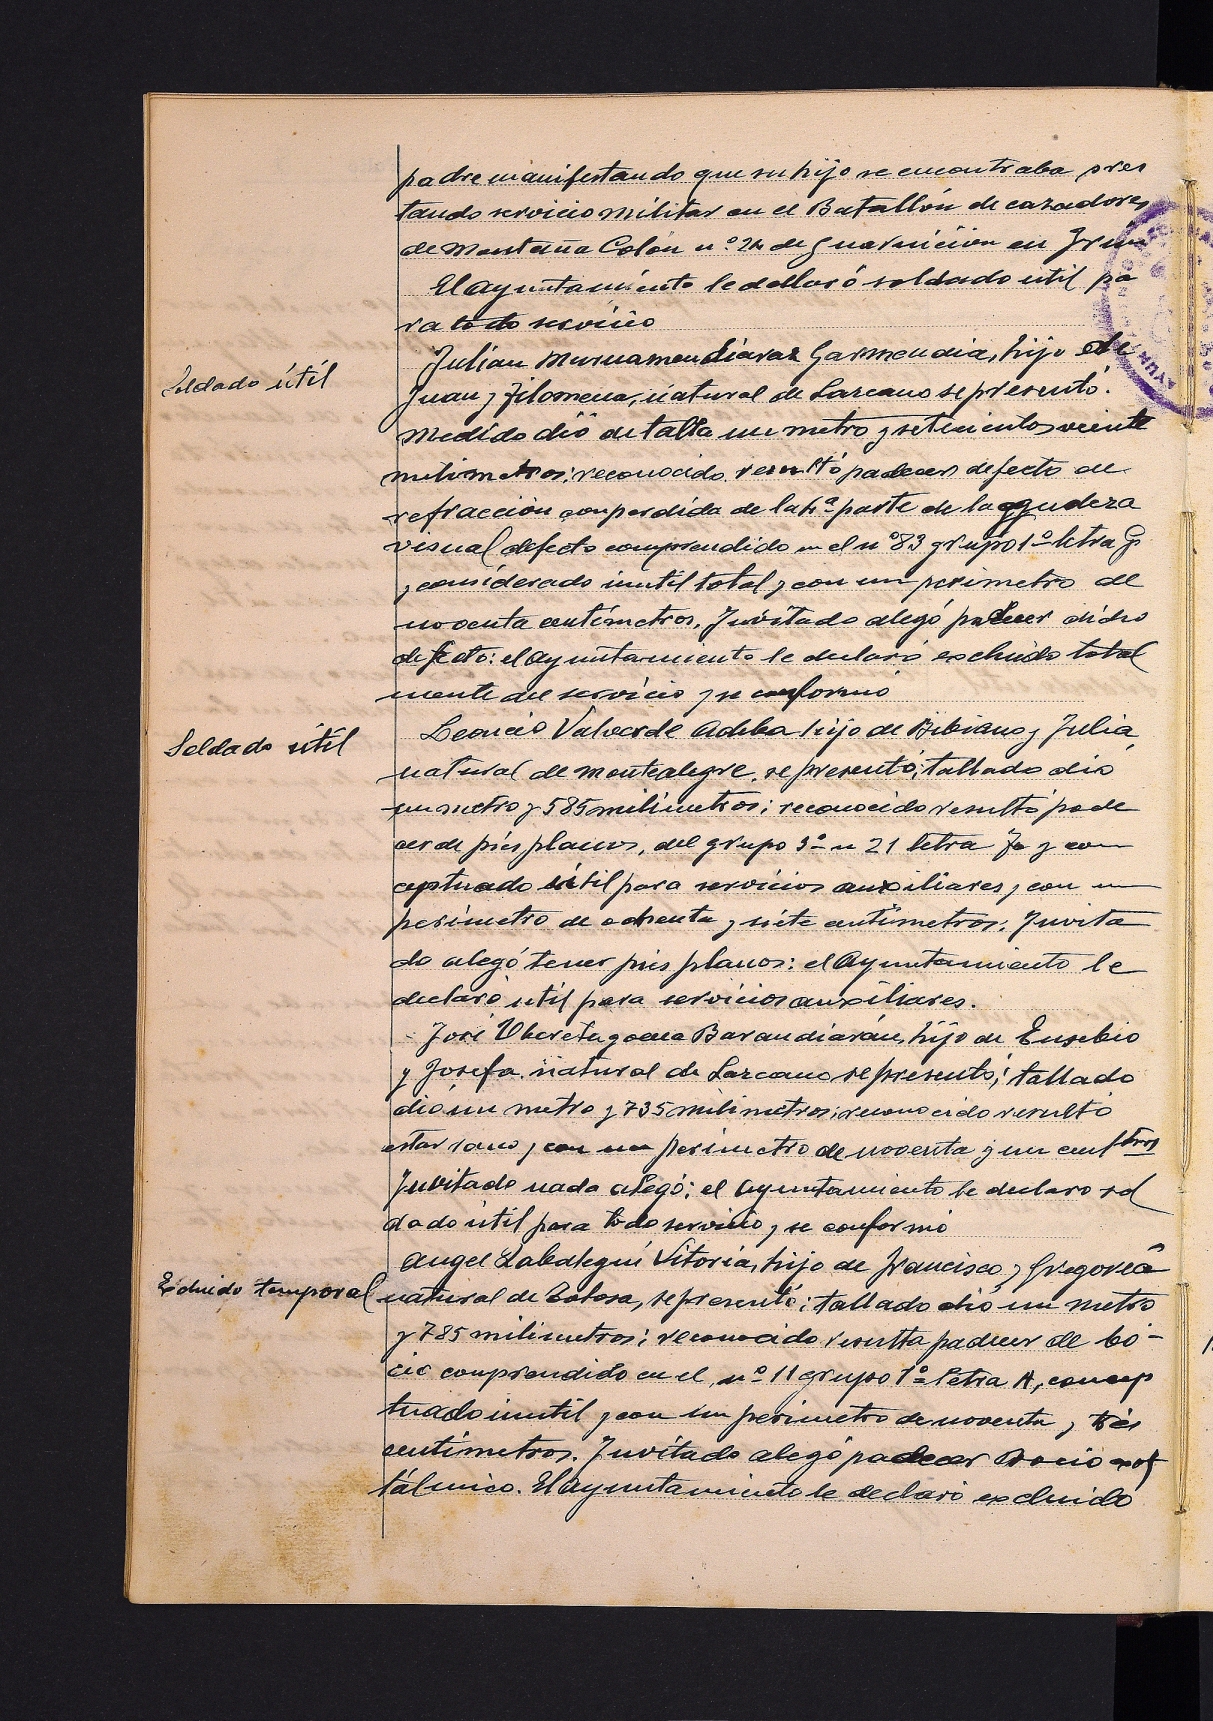 padre manifestando que su hijo se encontraba pres
tando servicio militar en el Batallón de cazadores
de Montaña Colón nº 24 de guarnición en Irun
El Ayuntamiento le declaró soldado util pa
ra todo servicio
Soldado útil
Julian Muruamendiaraz Garmendia, hijo de
Juan y Filomena, natural de Lazcano se presentó.
Medido dió de talla un metro y setecientos veinte
milimetros; reconocido resultó padecer defecto de
refracción con perdida de la 4ª parte de la agudeza
visual defecto comprendido en el nº 83 grupo 1º letra G
y considerado inutil total y con un perimetro de
noventa centímetros. Invitado alegó padecer dicho
defecto: el ayuntamiento le declaró excluido total
mente del servicio y se conformó
Soldado útil
Leoncio Valverde hijo de Bibiano y Julia
natural de Montealegre, se presentó; tallado dió
un metro y 585 milimetros; reconocido resultó pade
cer de piés planos, del grupo 3º n 21 letra y con
ceptuado útil para servicios auxiliares y con un
perímetro de ochenta y siete centímetros: Invita
do alegó tener pies planos: el Ayuntamiento le
declaró útil para servicios auxiliares.
José Ubcretagoena Barandiarán, hijo de Eusebio
y Josefa. natural de Lazcano se presentó; tallado
dió un metro y 735 milimetros; reconocido resultó
estar sano y con un perímetro de noventa y un centros
Invitado nada alegó; el Ayuntamiento le declaro sol
dado útil para todo servicio y se conformó
Excluido temporal
Angel Labadegui Vitoria, hijo de Francisco y Gregoria
natural de Tolosa, se presentó; tallado dió un metro
y 785 milimetros; reconocido resulta padecer de bó-
cio comprendido en el nº 11 grupo 1º letra A, concep
tuado inutil y con un perimetro de noventa y tres
centímetros. Invitado alegó padecer Bocio exof
tálmico. El Ayuntamiento le declaró excluido